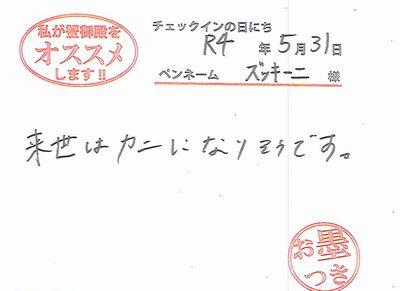 私が蟹御殿を
オススメ
します!!
チェックインの日にち
R4 年 5 月 31 日
ペンネーム ズッキーニ 様
来世はカニになりそうです。
お墨
つき